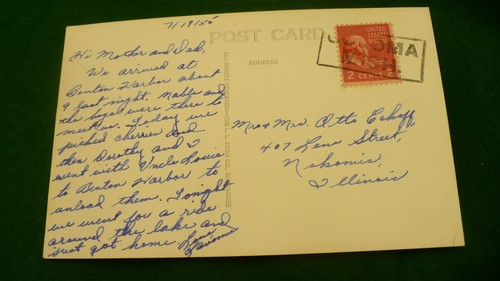 7/19/55
POST CARD
ADDRESS
Hi Mother and Dad,
We arrived at
Benton Harbor about
9 last night. Mable and
the boys were there to
meet us. Today we
picked cherries and
then Dorothy and I
went with Uncle Louie
to Benton Harbor to
unload them. Tonight
we went for a ride
around the lake and
just got home
Love
UNITED
STATES
POSTAGE
2 CENTS 2
Mr & Mrs. Otto Eckoff
407 Lena Street,
Nokomis,
Illinois